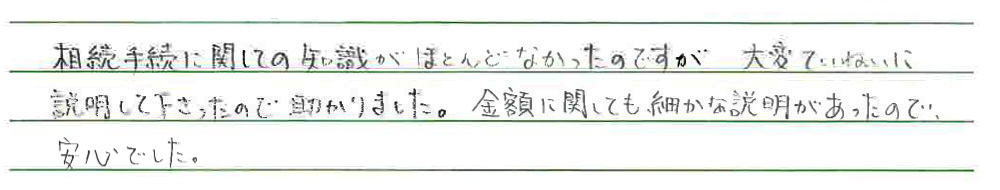 相続手続に関しての知識がほとんどなかったのですが 大変ていねいに
説明して下さったので助かりました。金額に関しても細かな説明があったので、
安心でした。